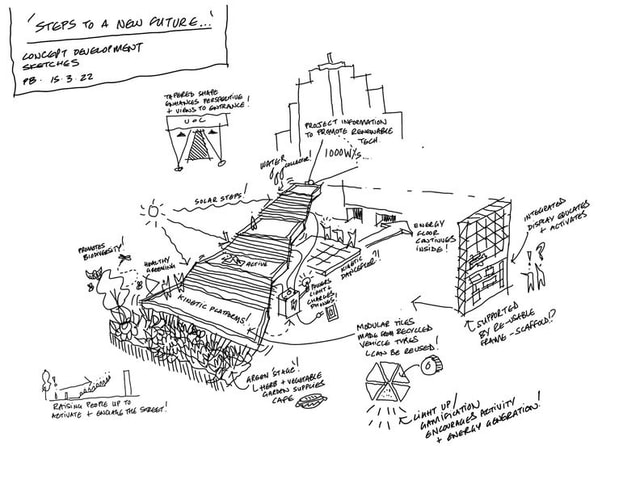 'STEPS TO A NEW FUTURE...'
CONCEPT DEVELOPMENT
SKETCHES
PB. 15.3.22
TAPERED SHAPE
ENHANCES PERSPECTIVE
+ VIEWS TO ENTRANCE!
PROJECT INFORMATION
TO PROMOTE RENEWABLE
TECH.
1000W/s...
WATER
COLLECTOR!
SOLAR STEPS!
INTEGRATED
DISPLAY EDUCATES
+ ACTIVATES
ENERGY
FLOOR
CONTINUES
INSIDE!
PROMOTES
BIODIVERSITY!
HEALTHY
GREENING
ACTIVE
KINETIC
DANCEFLOOR?!
POWERS
LIGHT +
CHARGES
PHONES!
KINETIC PLATFORMS!
SUPPORTED
BY RE-USABLE
FRAME - SCAFFOLD!?
MODULAR TILES
MADE FROM RECYCLED
VEHICLE TYRES
CAN BE REUSED!
HERB + VEGETABLE
GARDEN SUPPLIES
CAFE
RAISING PEOPLE UP TO
ACTIVATE + ENGAGE THE STREET!
LIGHT UP/
GAMIFICATION
ENCOURAGES ACTIVITY
+ ENERGY GENERATION!